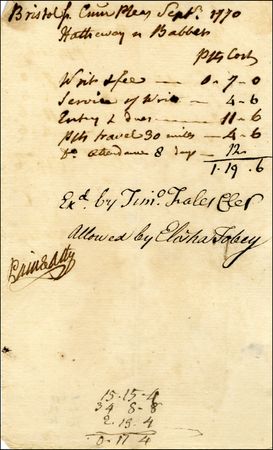 Bristol ss Com Pleas Septr. 1770
Hatheway v Babbet
Plts Cost
Writ & fee — 0 - 7 - 0
Service of Writ — 4 - 6
Entry & dues — 11 - 6
Plts travel 30 miles — 4 - 6
Do. attendance 8 days — 12
1. 19. 6
Exd. by Timo. Fales Cler
Allowed by Elisha Tobey
15 - 15 - 4
34 8 - 8
2. 19. 4
0 - 11 4